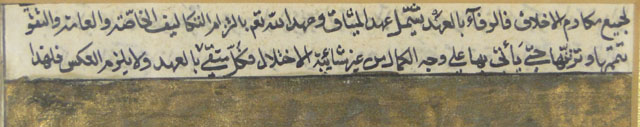 لجميع مكارم الاخلاق فالوفاء بالعهد يشمل عهد الميثاق وعهد الله تعم بالزام التكاليف الخاصة والعامة والتقو
تتمتها وتزينها حتى يأتى بها على وجه الكمال من غير شائبة الاختلال فكل متقى بالعهد ولا يلزم العكس فلهذا